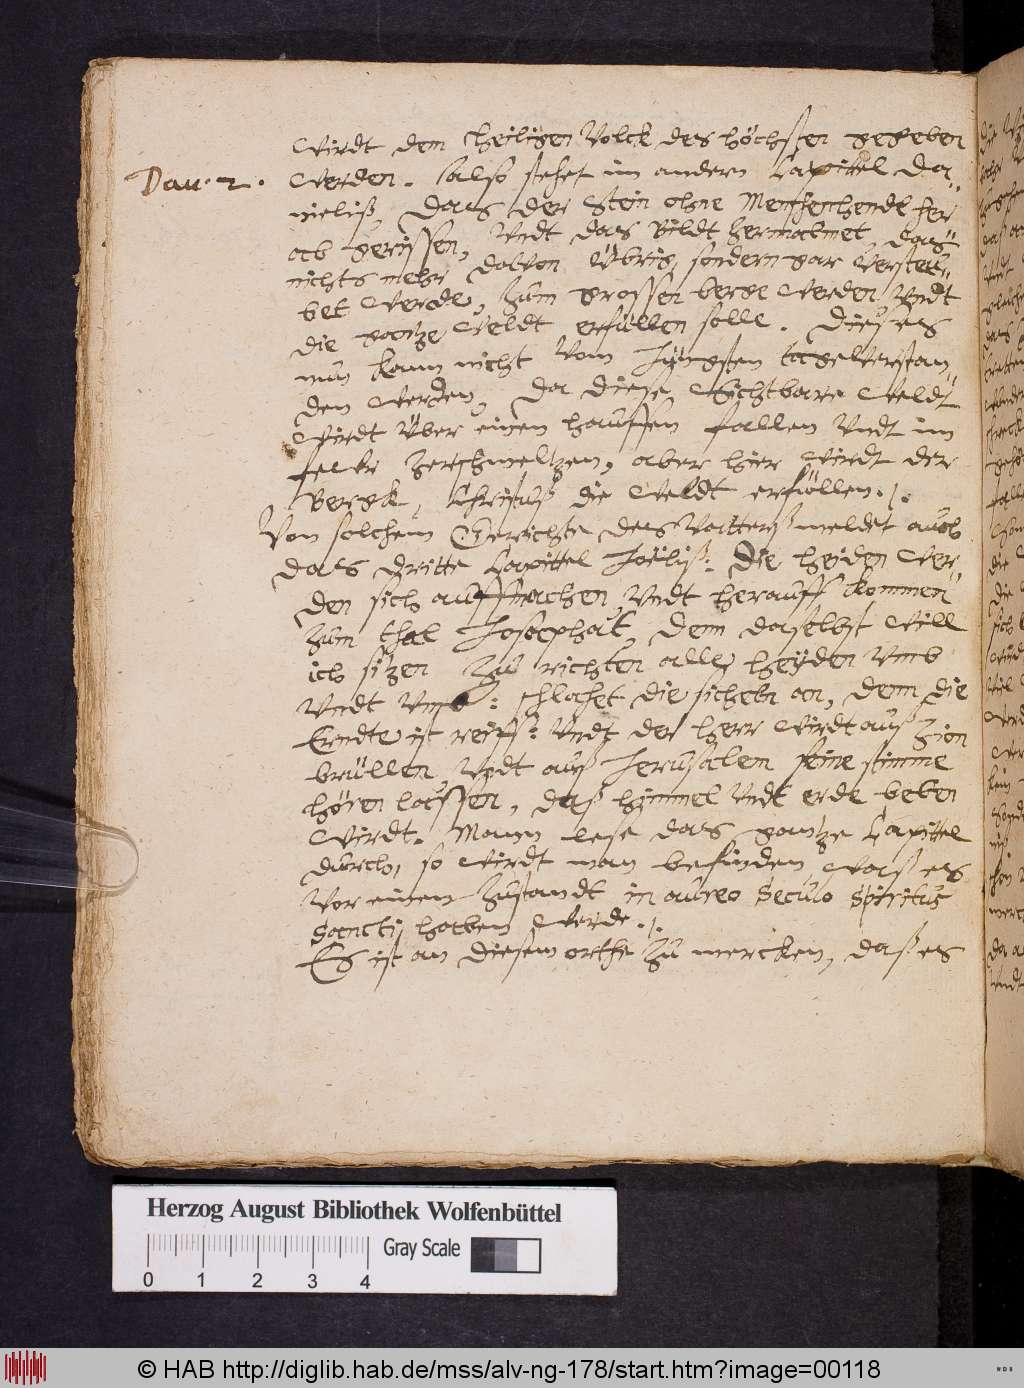 wirdt dem heiligen Volck des höchsten gegeben
Dan. 2.
werden. also stehet im andern Capittel Da=
nieliß, dass der Stein ohne Menschenhende her
ab gerissen, Undt das Bildt zermalmet, das
nichts mehr davon übrig, sondern gar versteu=
bet werde, zum grossen berge werden Undt
die gantze Weldt erfüllen solle. Dieses
nun kann nicht vom Jüngsten tage verstan=
den werden, da diese Sichtbare Weldt
wirdt über einen hauffen fallen Undt im
feur zerschmeltzen, aber hier wirdt der
Bergk, Christuß die Weldt erfüllen./.
Von solchem Gerichte des Vatterß meldet auch
das dritte Capittel Joëliß: Die heiden wer=
den sich auffmachen, Undt herauff kommen
zum thal Josaphat, denn daselbst will
ich sitzen zu richten alle heyden Umb
Undt Umb: schlahet die sicheln an, denn die
Erndte ist reiff: Undt der herr wirdt auß Zion
brüllen, Undt auß Jerusalem seine stimme
hören lassen, daß himmel Undt erde beben
wirdt. Mann lese das gantze Capittel
durch, so wirdt man befinden, waß es
vor einen Zustandt in aureo Seculo Spiritus
Sancti haben werde./.
Es ist an diesem orthe zu mercken, daß es
Herzog August Bibliothek Wolfenbüttel
Gray Scale
0 1 2 3 4
© HAB http://diglib.hab.de/mss/alv-ng-178/start.htm?image=00118